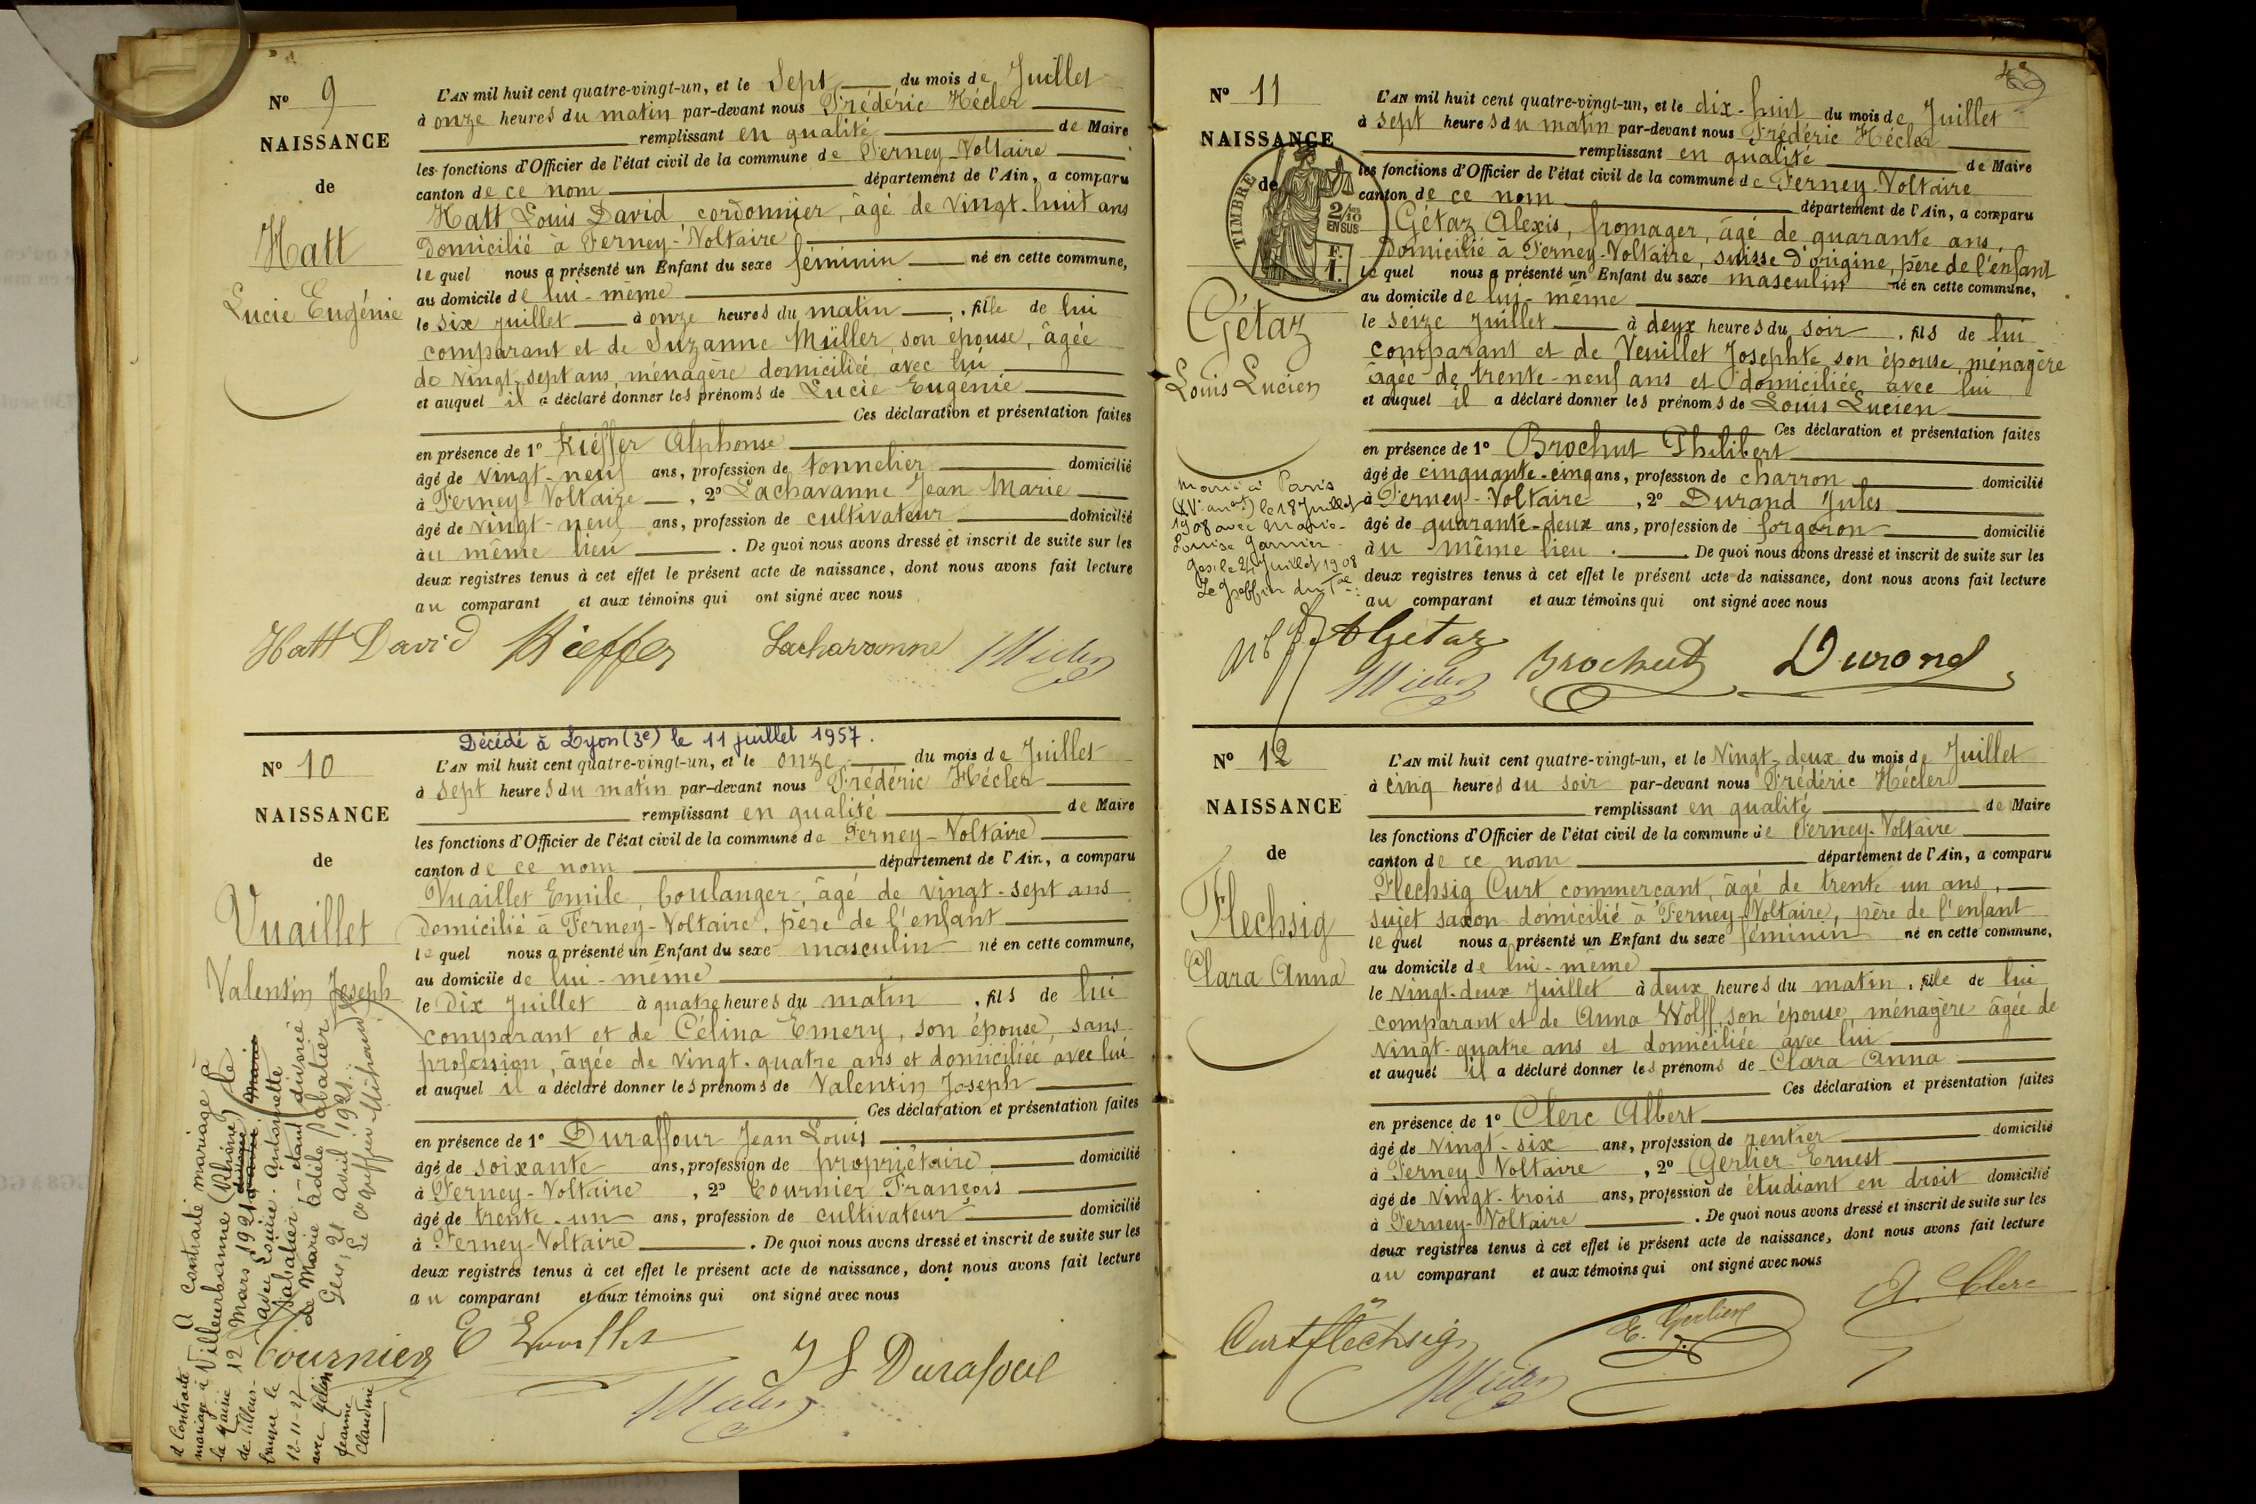 Nº 9
NAISSANCE
de
Hatt
Lucie Eugénie
L'AN mil huit cent quatre-vingt-un, et le Sept du mois de Juillet
à onze heures du matin par-devant nous Frédéric Hécler
remplissant en qualité de Maire
les fonctions d'Officier de l'état civil de la commune de Ferney-Voltaire
canton de ce nom département de l'Ain, a comparu
Hatt Louis David cordonnier, âgé de vingt-huit ans
domicilié à Ferney-Voltaire
lequel nous a présenté un Enfant du sexe féminin né en cette commune,
au domicile de lui-même
le six juillet à onze heures du matin, fille de lui
comparant et de Suzanne Müller, son épouse, âgée
de vingt-sept ans, ménagère domiciliée avec lui
et auquel il a déclaré donner les prénoms de Lucie Eugénie
Ces déclaration et présentation faites
en présence de 1º Kiéffer Alphonse
âgé de vingt-neuf ans, profession de tonnelier domicilié
à Ferney-Voltaire, 2º Lacharanne Jean Marie
âgé de vingt-neuf ans, profession de cultivateur domicilié
au même lieu. De quoi nous avons dressé et inscrit de suite sur les
deux registres tenus à cet effet le présent acte de naissance, dont nous avons fait lecture
au comparant et aux témoins qui ont signé avec nous
Hatt David Kieffer Lacharanne
Nº 10
NAISSANCE
de
Vuaillet
Valentin Joseph
Décédé à Lyon (3e) le 11 juillet 1957.
L'AN mil huit cent quatre-vingt-un, et le onze du mois de Juillet
à sept heures du matin par-devant nous Frédéric Hécler
remplissant en qualité de Maire
les fonctions d'Officier de l'état civil de la commune de Ferney-Voltaire
canton de ce nom département de l'Ain, a comparu
Vuaillet Emile, boulanger, âgé de vingt-sept ans
domicilié à Ferney-Voltaire, père de l'enfant
lequel nous a présenté un Enfant du sexe masculin né en cette commune,
au domicile de lui-même
le dix Juillet à quatre heures du matin, fils de lui
comparant et de Célina Emery, son épouse, sans
profession, âgée de vingt-quatre ans et domiciliée avec lui
et auquel il a déclaré donner les prénoms de Valentin Joseph
Ces déclaration et présentation faites
en présence de 1º Duraffour Jean Louis
âgé de soixante ans, profession de propriétaire domicilié
à Ferney-Voltaire, 2º Tournier François
âgé de trente-un ans, profession de cultivateur domicilié
à Ferney-Voltaire. De quoi nous avons dressé et inscrit de suite sur les
deux registres tenus à cet effet le présent acte de naissance, dont nous avons fait lecture
au comparant et aux témoins qui ont signé avec nous
Tournier E Vuaillet J L Durafour
A contracté mariage à
Villeurbanne (Rhône) le
12 Mars 1921
avec Louise-Antoinette
Sabatier - étant divorcé
de Marie Adèle Sabatier
Gex, 21 avril 1921
Le Greffier
A Contracté
mariage à
la Mairie
de Villeur-
banne le
12-11-27
avec Gélin
Jeanne
Claudine
Nº 11
NAISSANCE
de
TIMBRE
2/10 EN SUS
F. 1.
Gétaz
Louis Lucien
L'AN mil huit cent quatre-vingt-un, et le dix-huit du mois de Juillet
à sept heures du matin par-devant nous Frédéric Hécler
remplissant en qualité de Maire
les fonctions d'Officier de l'état civil de la commune de Ferney-Voltaire
canton de ce nom département de l'Ain, a comparu
Gétaz Alexis, fromager, âgé de quarante ans,
domicilié à Ferney-Voltaire, suisse d'origine, père de l'enfant
lequel nous a présenté un Enfant du sexe masculin né en cette commune,
au domicile de lui-même
le seize Juillet à deux heures du soir, fils de lui
comparant et de Venillet Josephte son épouse, ménagère
âgée de trente-neuf ans et domiciliée avec lui
et auquel il a déclaré donner les prénoms de Louis Lucien
Ces déclaration et présentation faites
en présence de 1º Brochut Philibert
âgé de cinquante-cinq ans, profession de charron domicilié
à Ferney-Voltaire, 2º Durand Jules
âgé de quarante-deux ans, profession de forgeron domicilié
au même lieu. De quoi nous avons dressé et inscrit de suite sur les
deux registres tenus à cet effet le présent acte de naissance, dont nous avons fait lecture
au comparant et aux témoins qui ont signé avec nous
Marié à Paris
(XVe arrt) le 18 Juillet
1908 avec Marie-
Louise Garnier
Gex, le 24 Juillet 1908
Le Greffier du Tal:
A Gétaz Brochut Durand
Nº 12
NAISSANCE
de
Flechsig
Clara Anna
L'AN mil huit cent quatre-vingt-un, et le Vingt-deux du mois de Juillet
à cinq heures du soir par-devant nous Frédéric Hécler
remplissant en qualité de Maire
les fonctions d'Officier de l'état civil de la commune de Ferney-Voltaire
canton de ce nom département de l'Ain, a comparu
Flechsig Curt commerçant, âgé de trente un ans,
sujet saxon domicilié à Ferney-Voltaire, père de l'enfant
lequel nous a présenté un Enfant du sexe féminin né en cette commune,
au domicile de lui-même
le vingt-deux Juillet à deux heures du matin, fille de lui
comparant et de Anna Wolff, son épouse, ménagère âgée de
vingt-quatre ans et domiciliée avec lui
et auquel il a déclaré donner les prénoms de Clara Anna
Ces déclaration et présentation faites
en présence de 1º Clerc Albert
âgé de vingt-six ans, profession de rentier domicilié
à Ferney-Voltaire, 2º Gerlier Ernest
âgé de vingt-trois ans, profession de étudiant en droit domicilié
à Ferney-Voltaire. De quoi nous avons dressé et inscrit de suite sur les
deux registres tenus à cet effet le présent acte de naissance, dont nous avons fait lecture
au comparant et aux témoins qui ont signé avec nous
Curt Flechsig E. Gerlier A. Clerc